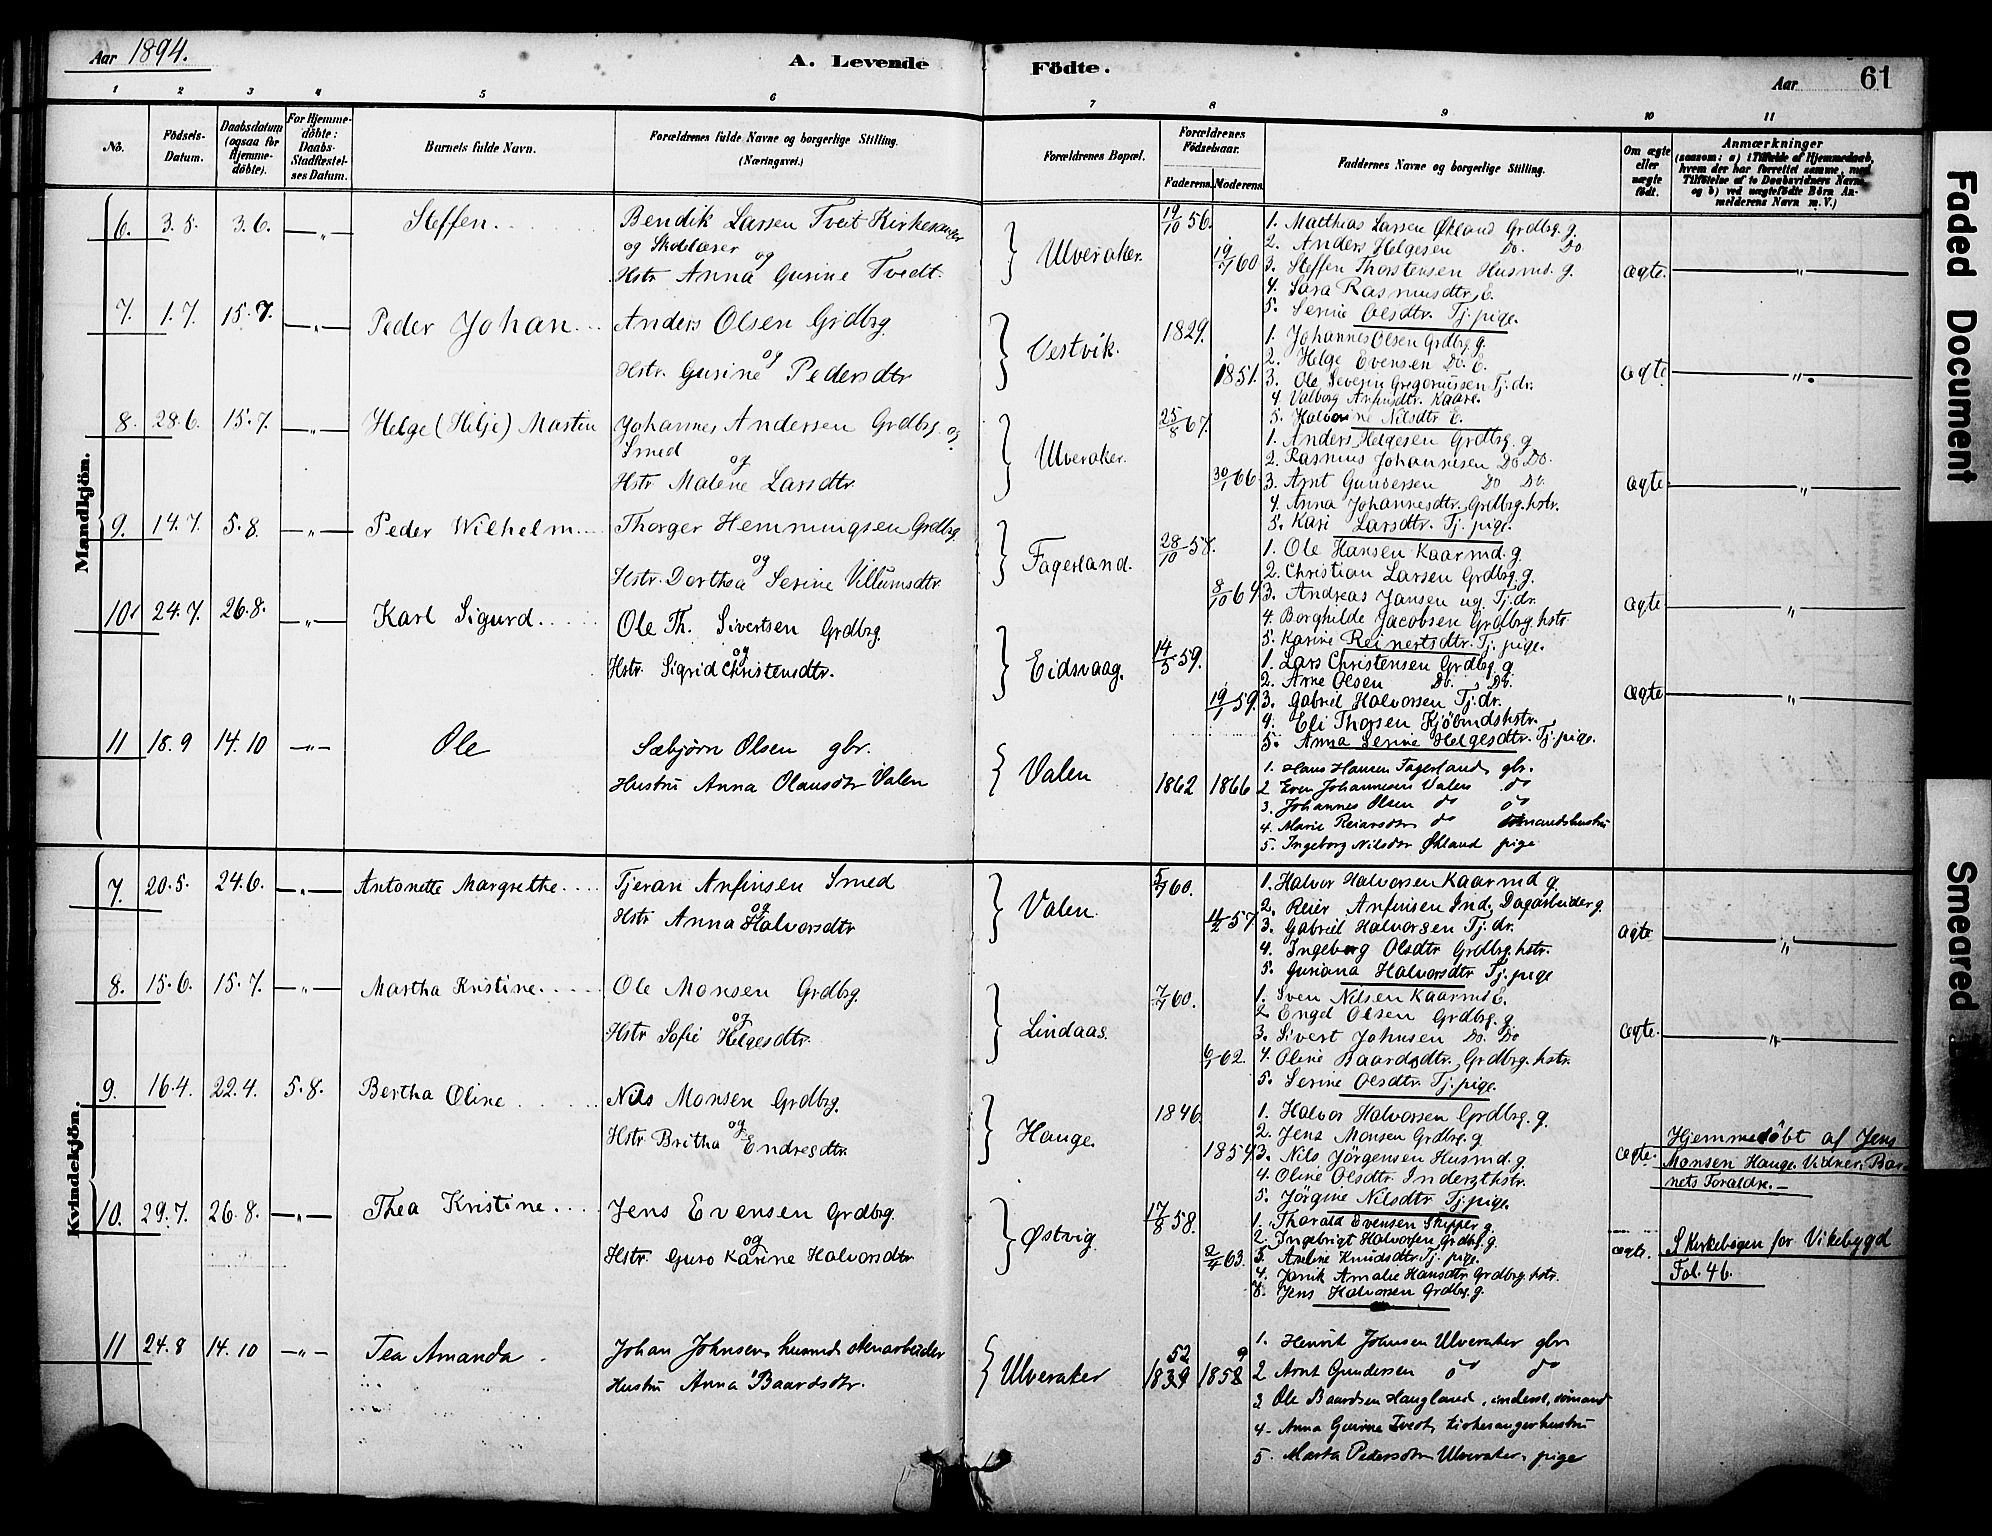 Aar 1894.
A. Levende Födte.
Aar 61
1 2 3 4 5 6 7 8 9 10 11
No.
Födsels-Datum.
Daabsdatum (ogsaa for Hjemme-döbte).
For Hjemme-döbte: Daabs-Stadfæstel-ses Datum.
Barnets fulde Navn.
Forældrenes fulde Navne og borgerlige Stilling. (Næringsvei.)
Forældrenes Bopæl.
Forældrenes Födselsaar.
Faderens. Moderens.
Faddernes Navne og borgerlige Stilling.
Om ægte eller uægte födt.
Anmærkninger
(saasom: a) i Tilfælde af Hjemmedaab, hvem der har forrettet samme, med Tilföielse af to Daabsvidners Navne, og b) ved uægtefödte Börn An-melderens Navn m. V.)
Mandkjön.
6. 3.5. 3.6. —„— Steffen.
Bendik Larsen Tveit Kirkesanger
og Skolelærer
og
Hstr Anna Gurine Tvedt.
Ulveraker.
19/10 56.
19/1 60
1. Matthias Larsen Økland Grdbrg. g.
2. Anders Helgesen Do. Do
3. Steffen Thorstensen Husmd. g.
4. Sara Rasmusdtr. E.
5. Serine Olsdtr. Tj. pige.
ægte. —„—
7. 1.7. 15.7. —„— Peder Johan
Anders Olsen Grdbrg.
og
Hstr. Gurine Pedersdtr
Vestvik.
1829.
1851.
1. Johannes Olsen Grdbrg g.
2. Helge Evensen Do. E.
3. Ole Severin Gregoriussen Tj. dr.
4. Valborg Anfindtr. Kaare.
5. Halvorine Nilsdtr E.
ægte. —„—
8. 28.6. 15.7. —„— Helge (Helje) Martin
Johannes Andersen Grdbrg. og
Smed
og
Hstr Malene Larsdtr.
Ulveraker.
25/8 67.
30/1 66
1. Anders Helgesen Grdbrg. g
2. Rasmus Johannesen Do Do.
3. Arnt Gundersen Do Do.
4. Anna Johannesdtr. Grdbrg. hstr.
5. Kari Larsdtr. Tj. pige.
ægte. —„—
9. 14.7. 5.8. —„— Peder Wilhelm
Thorger Hemmingsen Grdbrg.
og
Hstr. Dorthea Serine Villumsdtr.
Fagerland.
28/10 58.
8/10 64
1. Ole Hansen Kaarmd. g.
2. Christian Larsen Grdbrg. g.
3. Andreas Jansen ug. Tj. dr.
4. Borghilde Jacobsen Grdbrg. hstr
5. Karine Reinertsdtr. Tj. pige.
ægte —„—
10. 24.7. 26.8. —„— Karl Sigurd.
Ole Th. Sivertsen Grdbrg.
og
Hstr. Sigrid Christensdtr.
Eidsvaag.
14/5 59.
19/1 59.
1. Lars Christensen Grdbrg. g
2. Arne Olsen Do. Do.
3. Gabriel Halvorsen Tj. dr.
4. Eli Thorsen Kjöbmdshstr.
5. Anna Serine Helgesdtr. Tj. pige.
ægte —„—
11 18.9 14.10 —„— Ole
Sæbjørn Olsen gbr.
Hustru Anna Olausdtr Valen
Valen
1862 1866
1. Hans Hansen Fagerland, gbr.
2 Even Johannesen Valen do
3. Johannes Olsen do do
4. Marie Reiarsdtr do
5. Ingeborg Nilsdtr Økland pige
Kvindekjön.
7. 20.5. 24.6. —„— Antonette Margrethe.
Tjeran Anfinsen Smed
og
Hstr Anna Halvorsdtr
Valen.
5/1 60.
11/2 57
1. Halvor Halvorsen Kaarmd g.
2. Reier Anfinsen Ind. Dagarbeider g.
3. Gabriel Halvorsen Tj. dr.
4. Ingeborg Olsdtr Grdbrg. hstr.
5. Guriana Halvorsdtr Tj. pige
ægte —„—
8. 15.6. 15.7. —„— Martha Kristine.
Ole Monsen Grdbrg.
og
Hstr Sofie Helgesdtr.
Lindaas.
7/1 60.
6/1 62.
1. Sven Nilsen Kaarmd E.
2 Engel Olsen Grdbrg. g.
3. Sivert Johnsen Do. Do
4. Oline Baardsdtr. Grdbrg. hstr.
5. Serine Olsdtr. Tj. pige.
ægte. —„—
9. 16.4. 22.4. 5.8. Bertha Oline
Nils Monsen Grdbrg.
og
Hstr. Britha Endresdtr.
Hauge.
1846.
1854
1. Halvor Halvorsen Grdbrg. g.
2. Jens Monsen Grdbrg. g
3. Nils Jörgensen Husmd. g
4. Oline Olsdtr. Inderst hstr.
5. Jörgine Nilsdtr Tj. pige.
ægte.
Hjemmedöbt af Jens
Monsen Hauge. Vidner: Bar-
nets Foraldre.—
10. 29.7. 26.8. —„— Thea Kristine
Jens Evensen Grdbrg.
og
Hstr. Guro Karine Halvorsdtr
Østvig.
17/8 58.
2/4 63.
1. Tharald Evensen Skipper g.
2. Ingebrigt Halvorsen Grdbrg. g.
3. Arline Knudsdtr. Tj. pige.
4. Janik Amalie Hansdtr Grdbrg. hstr.
5. Jens Halvorsen Grdbrg. g.
ægte.
S Kirkebogen for Vikebygd
Fol. 46.
11 24.8 14.10 —„— Tea Amanda
Johan Johnsen, husmd. stenarbeider
Hustru Anna Baardsdtr.
Ulveraker
52
1839
9
1858
1. Henrik Johnsen Ulveraker gbr
2 Arnt Gundersen do do
3 Ole Baardsen Haugland, inderst, sömand
4. Anna Gurine Tvedt, kirkesangerhustru
5. Marta Pedersdtr Ulveraker, pige
Faded Document
Smeared